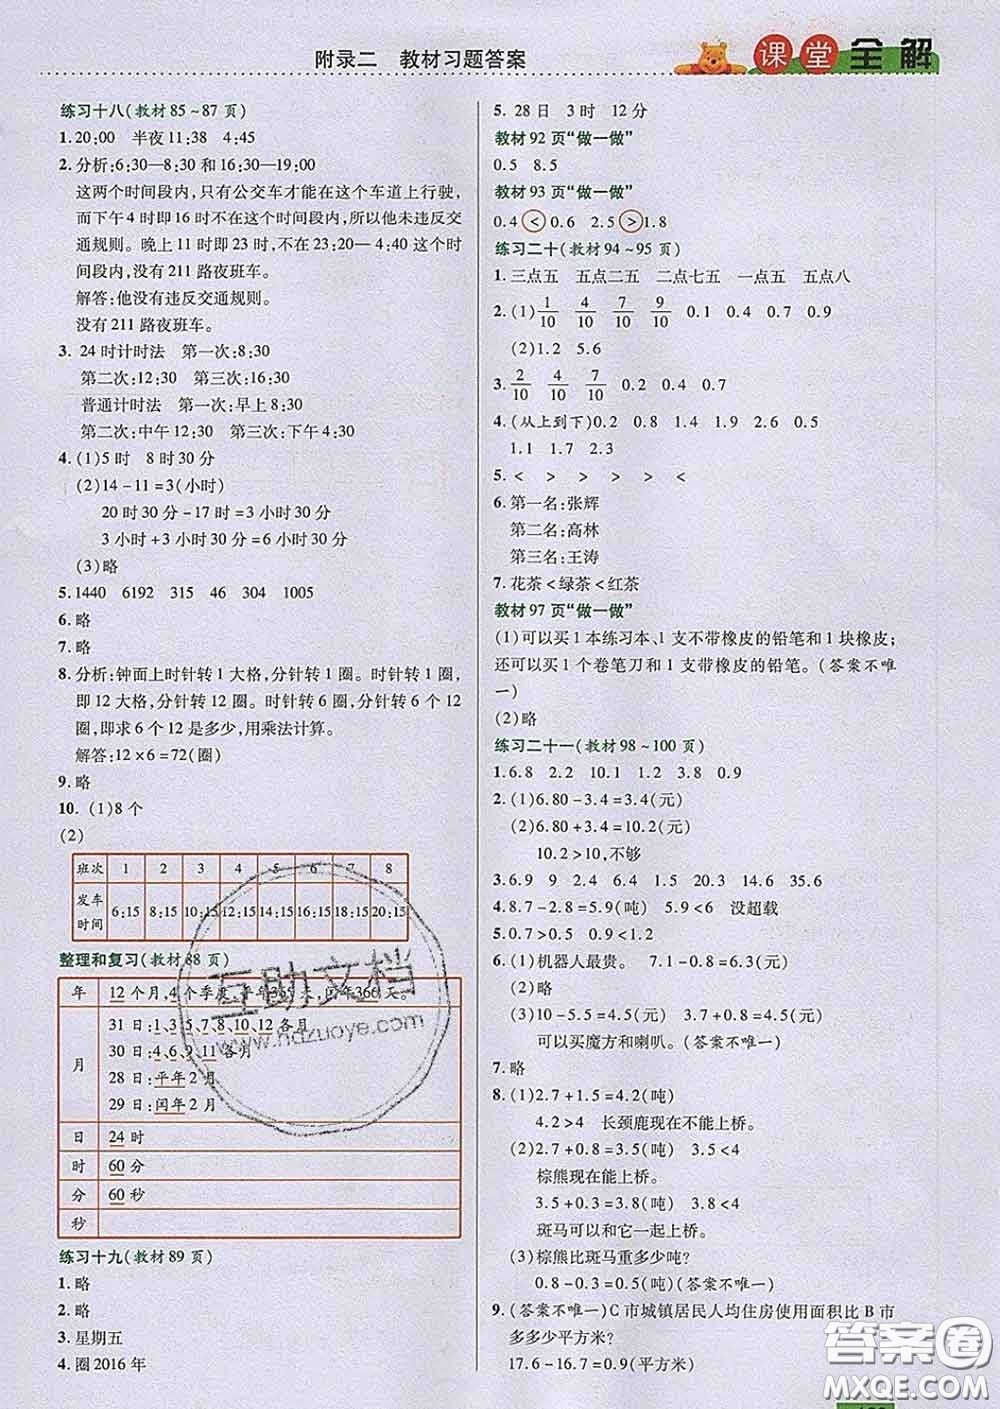 附录二 教材习题答案
课堂全解
练习十八(教材 85~87 页)
1.20:00 半夜 11:38 4:45
2. 分析:6:30—8:30 和 16:30—19:00
这两个时间段内,只有公交车才能在这个车道上行驶,
而下午 4 时即 16 时不在这个时间段内,所以他未违反交
通规则。晚上 11 时即 23 时,不在 23:20— 4:40 这个时
间段内,没有 211 路夜班车。
解答:他没有违反交通规则。
没有 211 路夜班车。
3. 24 时计时法 第一次:8:30
第二次:12:30 第三次:16:30
普通计时法 第一次:早上 8:30
第二次:中午 12:30 第三次:下午 4:30
4. (1)5 时 8 时 30 分
(2)14-11=3(小时)
20 时 30 分-17 时=3 小时 30 分
3 小时+3 小时 30 分=6 小时 30 分
(3)略
5. 1440 6192 315 46 304 1005
6. 略
7. 略
8. 分析:钟面上时针转 1 大格,分针转 1 圈。时针转 1 圈,
即 12 大格,分针转 12 圈。时针转 6 圈,分针转 6 个 12
圈,即求 6 个 12 是多少,用乘法计算。
解答:12×6=72(圈)
9. 略
10. (1)8 个
(2)
班次 1 2 3 4 5 6 7 8
发车时间 6:15 8:15 10:15 12:15 14:15 16:15 18:15 20:15
整理和复习(教材 88 页)
年 12 个月,4 个季度,平年 365 天,闰年 366 天。
月 31 日:1、3、5、7、8、10、12 各月
30 日:4、6、9、11 各月
28 日:平年 2 月
29 日:闰年 2 月
日 24 时
时 60 分
分 60 秒
秒
练习十九(教材 89 页)
1. 略
2. 略
3. 星期五
4. 圈 2016 年
5. 28 日 3 时 12 分
教材 92 页“做一做”
0.5 8.5
教材 93 页“做一做”
0.4 < 0.6 2.5 > 1.8
练习二十(教材 94~95 页)
1. 三点五 五点二五 二点七五 一点五 五点八
2. (1) 1/10 4/10 7/10 9/10 0.1 0.4 0.7 0.9
(2)1.2 5.6
3. 2/10 4/10 7/10 0.2 0.4 0.7
4. (从上到下)0.2 0.8 1.4 2.6 0.5
1.1 1.7 2.3
5. < > > > > <
6. 第一名:张辉
第二名:高林
第三名:王涛
7. 花茶<绿茶<红茶
教材 97 页“做一做”
(1)可以买 1 本练习本、1 支不带橡皮的铅笔和 1 块橡皮;
还可以买 1 个卷笔刀和 1 支带橡皮的铅笔。(答案不唯
一)
(2)略
练习二十一(教材 98~100 页)
1. 6.8 2.2 10.1 1.2 3.8 0.9
2. (1)6.80-3.4=3.4(元)
(2)6.80+3.4=10.2(元)
10.2>10,不够
3. 6.9 9 2.4 1.5 20.3 14.6 35.6
4. 8.7-2.8=5.9(吨) 5.9<6 没超载
5. 0.7>0.3 0.9<1.9
6. (1)机器人最贵。 7.1-0.8=6.3(元)
(2)略
(3)10-5.5=4.5(元) 3.7+0.8=4.5(元)
可以买魔方和喇叭。(答案不唯一)
7. 略
8. (1)2.7+1.5=4.2(吨)
4.2>4 长颈鹿现在不能上桥。
(2)2.7+0.8=3.5(吨) 3.5<4
棕熊现在能上桥。
3.5+0.3=3.8(吨) 3.8<4
斑马可以和它一起上桥。
(3)棕熊比斑马重多少吨?
0.8-0.3=0.5(吨)(答案不唯一)
9. (答案不唯一)C 市城镇居民人均住房使用面积比 B 市
多多少平方米?
17.6-16.7=0.9(平方米)
互助文档
www.hdzuoye.com
答案圈
MXQE.COM